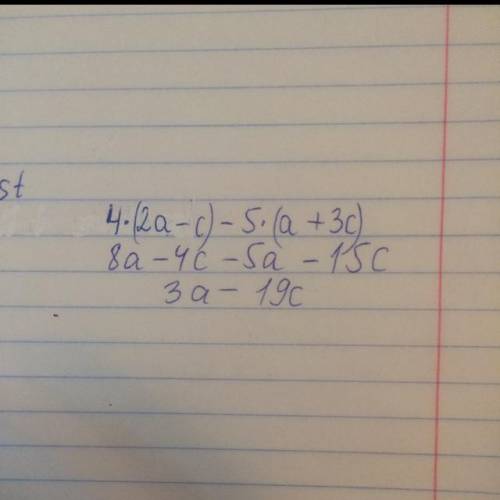 st
4·(2a-c)-5·(a+3c)
8a-4c-5a-15c
3a-19c